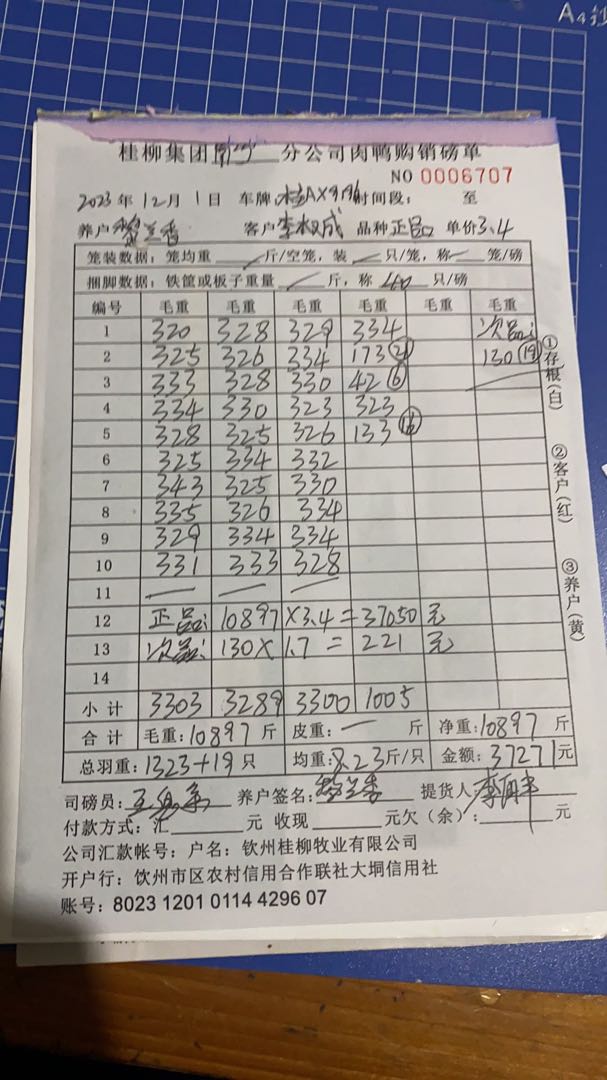 A4
桂柳集团 分公司肉鸭购销磅单
NO 0006707
2023年12月1日 车牌: 桂AX9196 时间段: 至
养户 黎兰香 客户 李权成 品种 正品 单价 3.4
笼装数据: 笼均重 / 斤/空笼, 装 / 只/笼, 称 / 笼/磅
捆脚数据: 铁筐或板子重量 / 斤, 称 40 只/磅
编号 毛重 毛重 毛重 毛重 毛重 毛重
1 320 328 329 334 次品:
2 325 326 334 173 21 130 19
3 333 328 330 42 6
4 334 330 323 323
5 328 325 326 133 16
6 325 334 332
7 343 325 330
8 335 326 334
9 329 334 334
10 331 333 328
11 — — —
12 正品: 10897 ×3.4 = 37050 元
13 次品: 130× 1.7 = 221 元
14
小计 3303 3289 3300 1005
合计 毛重: 10897 斤 皮重: — 斤 净重: 10897 斤
总羽重: 1323+19 只 均重: 8.23 斤/只 金额: 37271 元
司磅员: 养户签名: 黎兰香 提货人:
付款方式: 汇 元 收现 元欠(余): 元
公司汇款帐号: 户名: 钦州桂柳牧业有限公司
开户行: 饮州市区农村信用合作联社大垌信用社
账号: 8023 1201 0114 4296 07
①存根(白)
②客户(红)
③养户(黄)